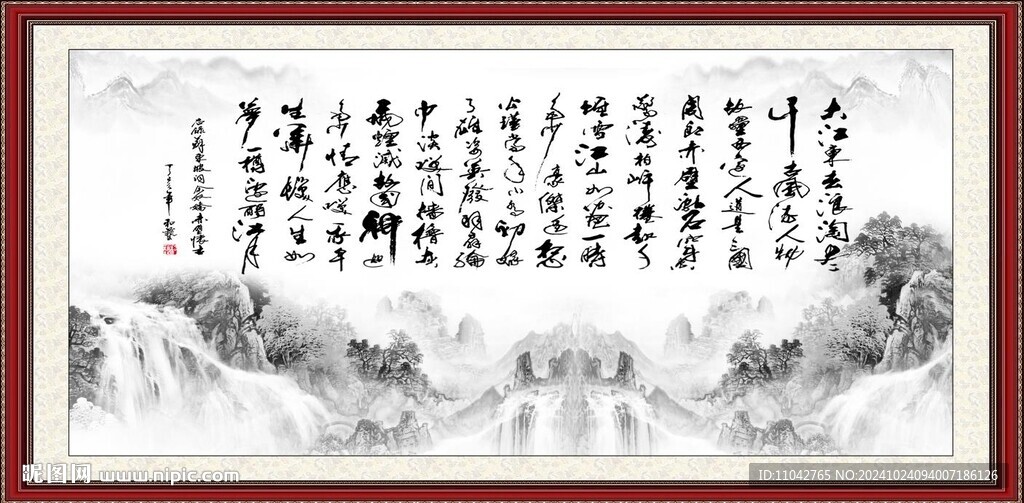 大江東去浪淘盡
千古風流人物
故壘西邊人道是三國
周郎赤壁亂石穿空
驚濤拍岸捲起
堆雪江山如畫一時
多少豪傑遥想
公瑾當年小喬初嫁
了雄姿英發羽扇綸
巾談笑間檣櫓灰
飛煙滅故國神
多情應笑我早
生華髮人生如
夢一樽還酹江月
錄蘇東坡詞念奴嬌赤壁懷古
丁亥年
昵图网 www.nipic.com
ID:11042765 NO:20241024094007186126